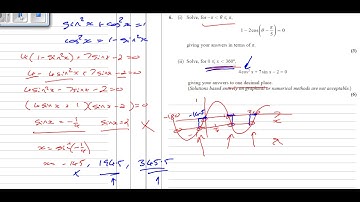 sin²x + cos²x = 1
cos²x = 1 - sin²x
4(1 - sin²x) + 7sinx - 2 = 0
4 - 4sin²x + 7sinx - 2 = 0
(4sinx + 1)(sinx - 2) = 0
sinx = -1/4 sinx = 2 X
x = sin⁻¹(-1/4)
x = -14.5, 194.5, 345.5
X
6. (i) Solve, for -π < θ ≤ π,
1 - 2cos(θ - π/5) = 0
giving your answers in terms of π.
(3)
(ii) Solve, for 0 ≤ x < 360°,
4cos²x + 7sin x - 2 = 0
giving your answers to one decimal place.
(Solutions based entirely on graphical or numerical methods are not acceptable.)
(6)
-180